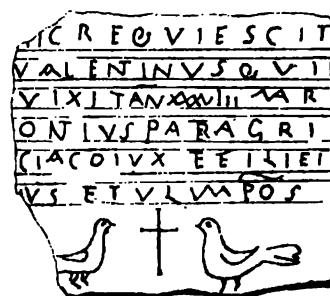 HIC REQVIESCIT
VALENTINVSQVI
VIXITANXXXVIII MAR
ONIVSPARAGRI
CIACOIVX EEILIEI
VSETVLVMPOS